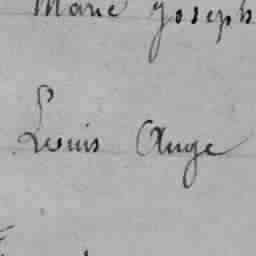 Marie Joseph
Louis Ange